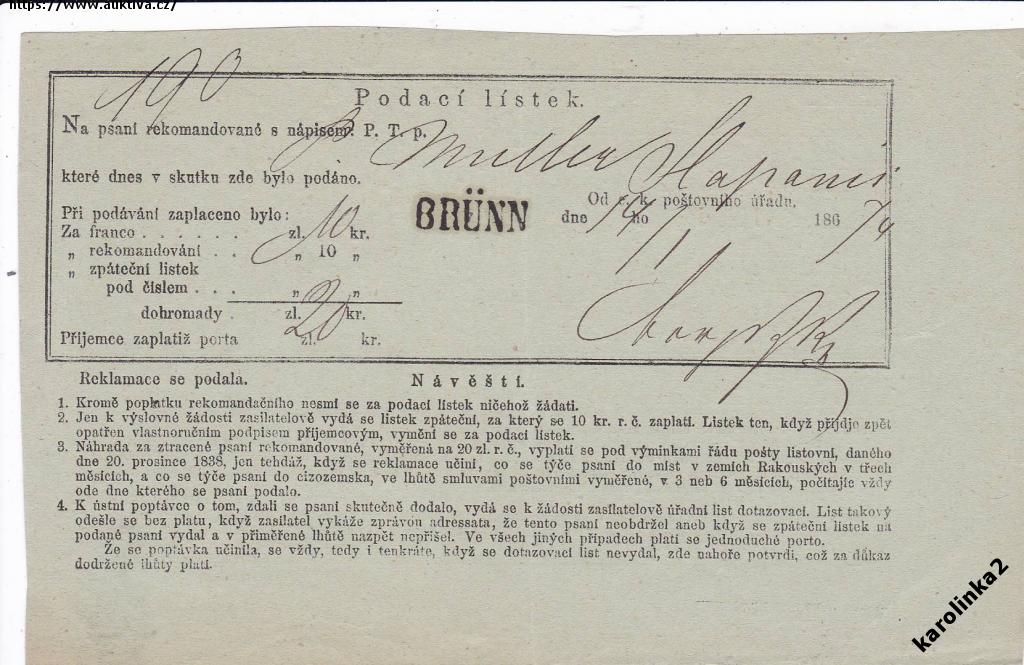 https://www.auktiva.cz/
190
Podací lístek.
Na psaní rekomandované s nápisem: P. T. p. Müller Slapanic
které dnes v skutku zde bylo podáno.
Od c. k. poštovního úřadu,
BRÜNN
dne 14/1 ho 186 74
Při podávání zaplaceno bylo:
Za franco . . . . . . zl. 10 kr.
„ rekomandování . . „ 10 „
„ zpáteční listek
pod číslem . . . „ „
dohromady . zl. 20 kr.
Příjemce zaplatiž porta zl. kr.
Reklamace se podala.
Návěští.
1. Kromě poplatku rekomandačního nesmí se za podací lístek ničehož žádati.
2. Jen k výslovné žádosti zasílatelově vydá se lístek zpáteční, za který se 10 kr. r. č. zaplatí. Lístek ten, když přijdje zpět
opatřen vlastnoručním podpisem příjemcovým, vymění se za podací lístek.
3. Náhrada za ztracené psaní rekomandované, vyměřená na 20 zl. r. č., vyplatí se pod výminkami řádu pošty listovní, daného
dne 20. prosince 1838, jen tehdáž, když se reklamace učiní, co se týče psaní do míst v zemích Rakouských v třech
měsících, a co se týče psaní do cizozemska, ve lhůtě smluvami poštovními vyměřené, v 3 neb 6 měsících, počítajíc vždy
ode dne kterého se psaní podalo.
4. K ústní poptávce o tom, zdali se psaní skutečně dodalo, vydá se k žádosti zasílatelově úřadní list dotazovací. List takový
odešle se bez platu, když zasílatel vykáže zprávou adressata, že tento psaní neobdržel aneb když se zpáteční lístek na
podané psaní vydal a v přiměřené lhůtě nazpět nepřišel. Ve všech jiných případech platí se jednoduché porto.
Že se poptávka učinila, se vždy, tedy i tenkráte, když se dotazovací list nevydal, zde nahoře potvrdí, což za důkaz
dodržené lhůty platí.
karolinka2